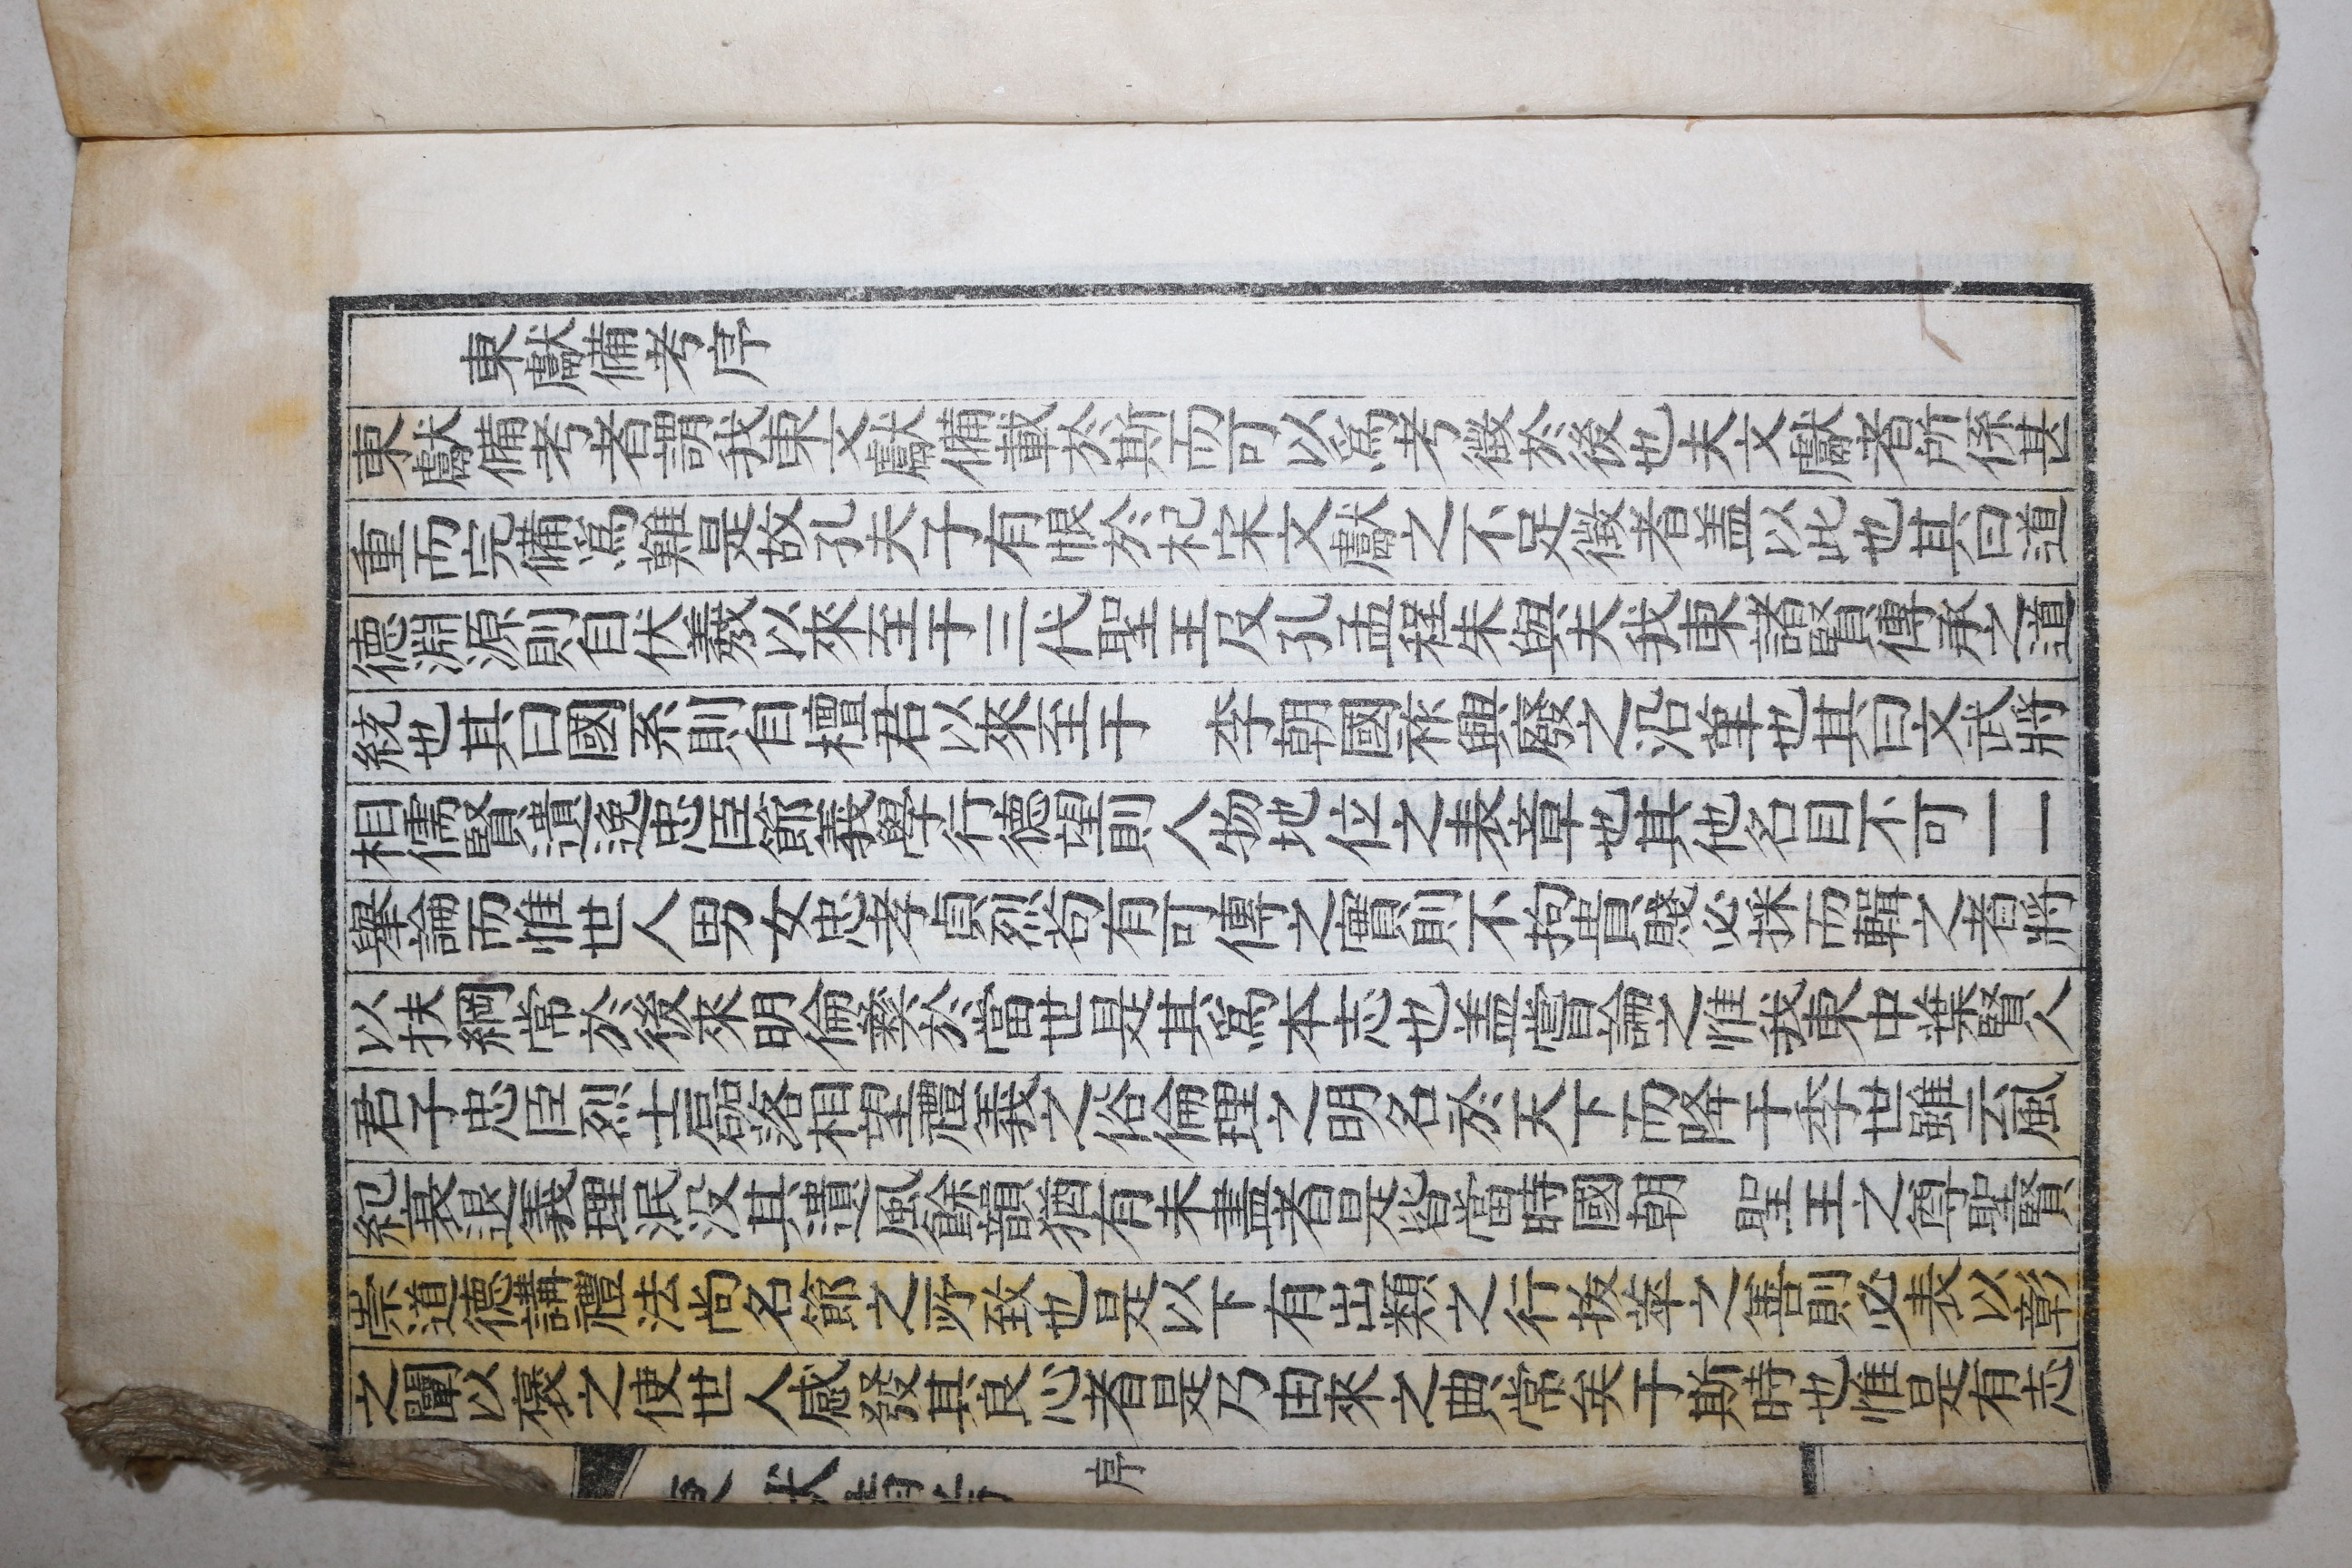 東獻備考序
東獻備考者謂我東文獻備載於斯而可以爲考徵於後也夫文獻者所係甚
重而完備爲難是故孔夫子有恨於杞宋文獻之不足徵者盖以此也其曰道
德淵源則自伏羲以來至于三代聖王及孔孟程朱與夫我東諸賢傳承之道
統也其曰國系則自檀君以來至于　李朝國祚興廢之沿革也其曰文武將
相儒賢遺逸忠臣節義學行德望則人物地位之表章也其他名目不可一一
擧論而惟世人男女忠孝貞烈苟有可傳之實則不拘貴賤必採而輯之者將
以扶綱常於後來明倫彜於當世是其爲本志也盖嘗論之惟我東中葉賢人
君子忠臣烈士磊落相望禮義之俗倫理之明名於天下而降于季世雖云風
紀衰退義理泯没其遺風餘韻猶有未盡者是皆當時國朝　聖王之尊聖賢
崇道德講禮法尙名節之所致也是以下有出類之行拔萃之善則必表以彰
之闡以褒之使世人感發其良心者是乃由來之典常矣于斯時也惟是有志
東獻備考　序